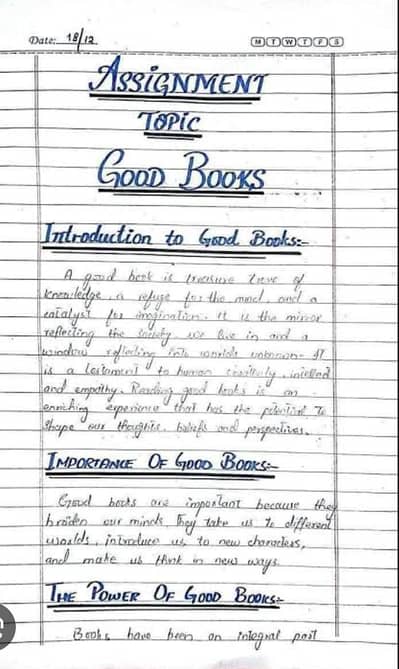 Date: 18/12
M T W T F S S
ASSIGNMENT
TOPIC
GOOD BOOKS
Introduction to Good Books:-
A good book is treasure trove of
knowledge, a refuge for the mind, and a
catalyst for imagination. It is the mirror
reflecting the society we live in and a
window reflecting into worlds unknown. It
is a testament to human creativity, intellect
and empathy. Reading good books is an
enriching experience that has the potential to
shape our thoughts, beliefs and perspectives.
IMPORTANCE OF GOOD BOOKS:-
Good books are important because they
broaden our minds. They take us to different
worlds, introduce us to new characters,
and make us think in new ways.
THE POWER OF GOOD BOOKS:-
Books have been an integral part